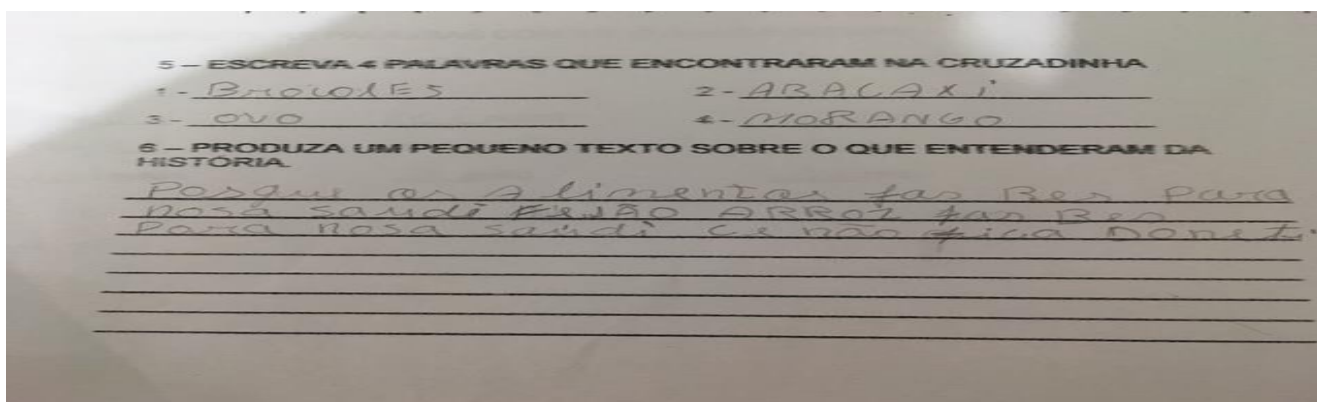 5 – ESCREVA 4 PALAVRAS QUE ENCONTRARAM NA CRUZADINHA
1 - BrocolES 2 - ABACAXi
3 - OVO 4 - MORANGO
6 – PRODUZA UM PEQUENO TEXTO SOBRE O QUE ENTENDERAM DA
HISTÓRIA.
Porque os Alimentos fas Bes Para
nosa saudi FEIJÃO ARROZ fas Bes
Para nosa saudi ce não fica Doneti